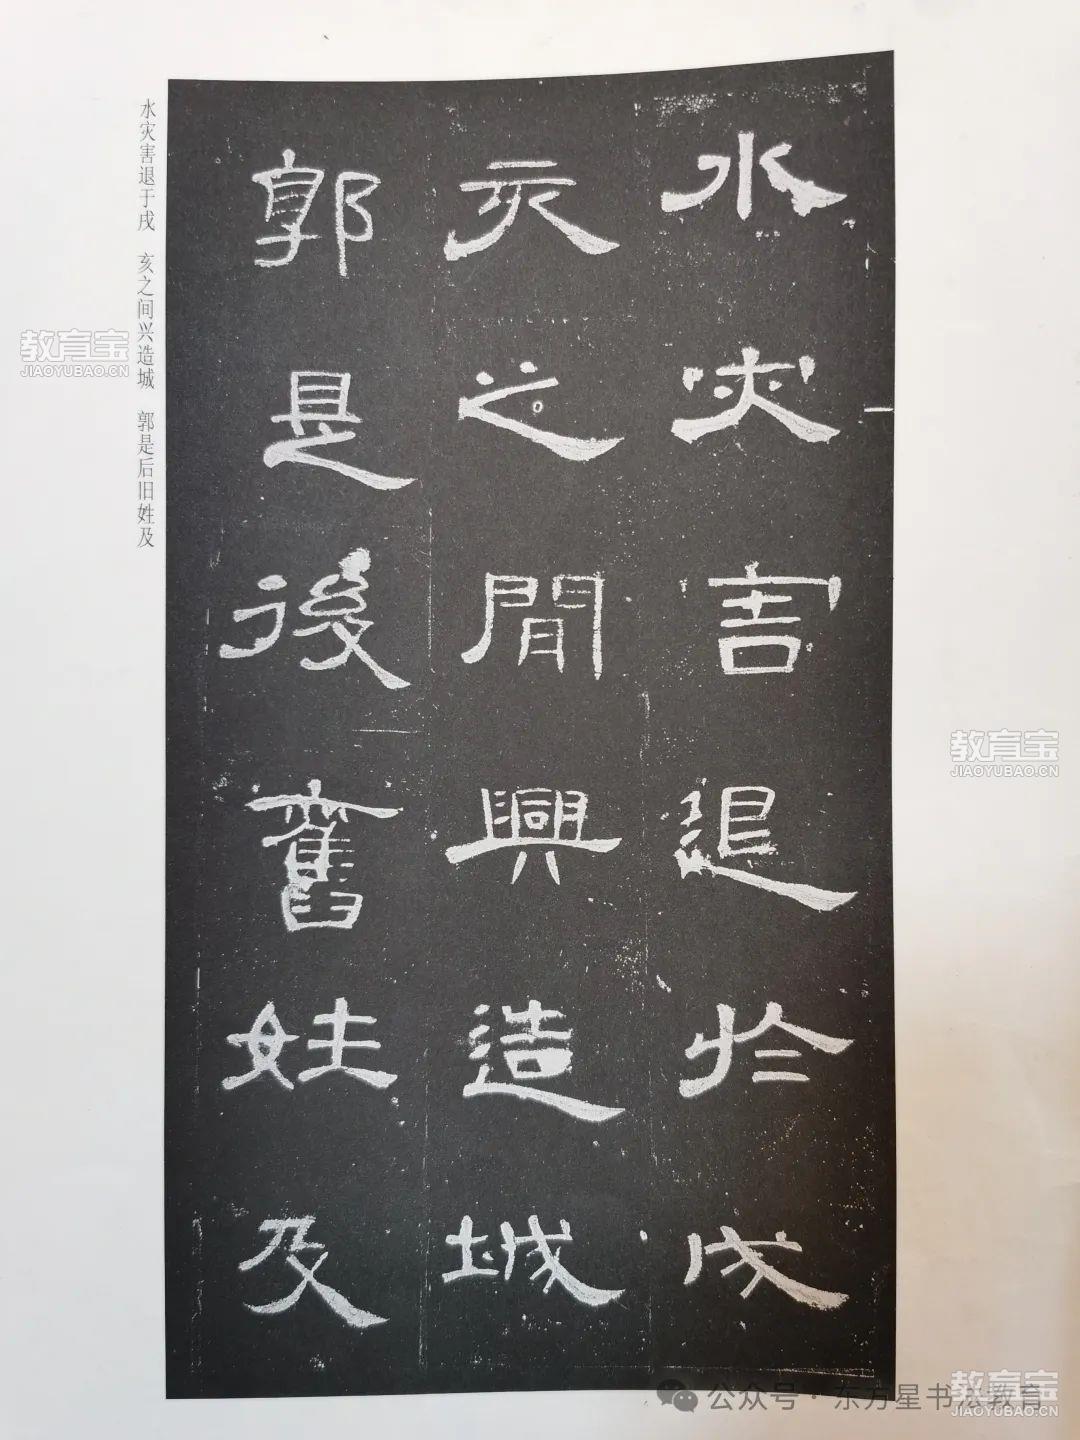 水灾害退於戌
亥之間興造城
郭是後舊姓及
水灾害退于戌 亥之间兴造城 郭是后旧姓及
教育宝
JIAOYUBAO.CN
教育宝
JIAOYUBAO.CN
教育宝
JIAOYUBAO.CN
公众号·东方星书法教育